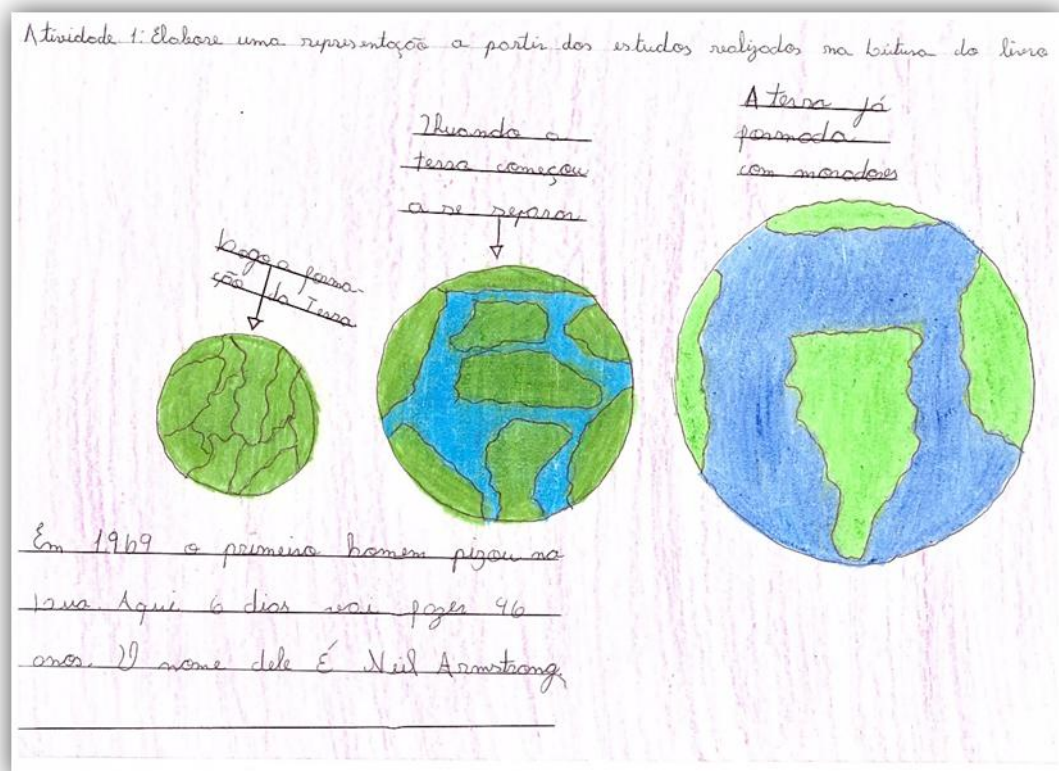 Atividade 1: Elabore uma representação a partir dos estudos realizados na Leitura do livro
Logo a forma-
ção da Terra
Quando a
terra começou
a se separar
A terra já
formada
com moradores
Em 1969 o primeiro homem pizou na
Lua Aqui 6 dias vai fazer 46
anos. O nome dele É Neil Armstrong.